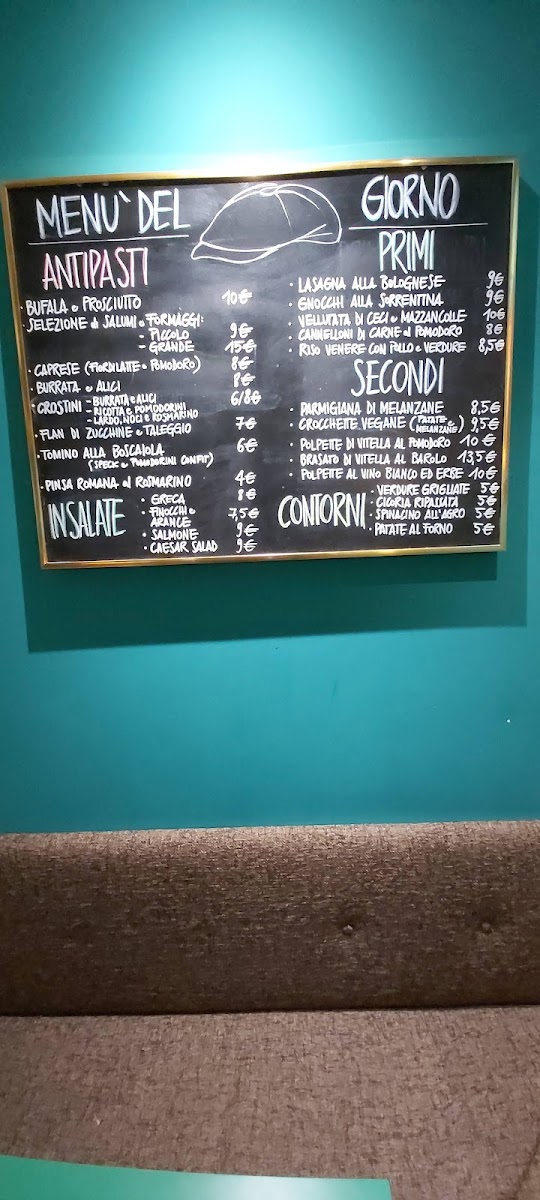 MENU` DEL GIORNO
ANTIPASTI
· BUFALA e PROSCIUTTO 10€
· SELEZIONE di SALUMI e FORMAGGI:
- PICCOLO 9€
- GRANDE 15€
· CAPRESE (FIORDILATTE e POMODORO) 8€
· BURRATA e ALICI 8€
· CROSTINI - BURRATA e ALICI 6/8€
- RICOTTA e POMODORINI
- LARDO, NOCI E ROSMARINO
· FLAN DI ZUCCHINE e TALEGGIO 7€
· TOMINO ALLA BOSCAIOLA 6€
(SPECK e POMODORINI CONFIT)
· PINSA ROMANA al ROSMARINO 4€
INSALATE
· GRECA 8€
· FINOCCHI e
ARANCE 7,5€
· SALMONE 9€
· CAESAR SALAD 9€
PRIMI
· LASAGNA ALLA BOLOGNESE 9€
· GNOCCHI ALLA SORRENTINA 9€
· VELLUTATA DI CECI e MAZZANCOLLE 10€
· CANNELLONI DI CARNE al POMODORO 8€
· RISO VENERE CON POLLO e VERDURE 8,5€
SECONDI
· PARMIGIANA DI MELANZANE 8,5€
· CROCCHETTE VEGANE (PATATE e MELANZANE) 9,5€
· POLPETTE DI VITELLA AL POMODORO 10€
· BRASATO DI VITELLA AL BAROLO 13,5€
· POLPETTE AL VINO BIANCO ED ERBE 10€
CONTORNI
· VERDURE GRIGLIATE 5€
· CICORIA RIPASSATA 5€
· SPINACINO ALL'AGRO 5€
· PATATE AL FORNO 5€